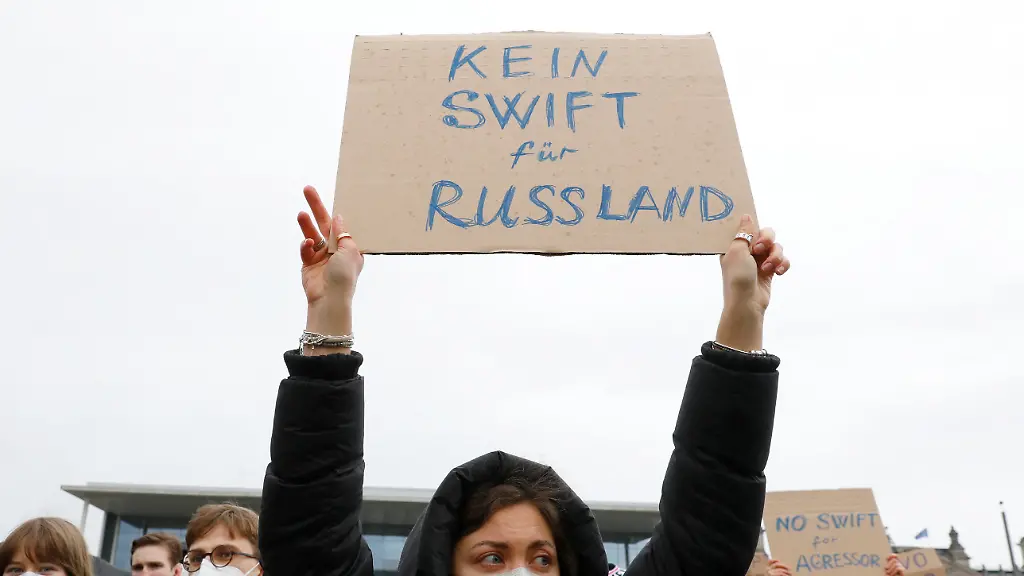 KEIN
SWIFT
für
RUSSLAND
NO SWIFT
for
AGRESSOR
NO